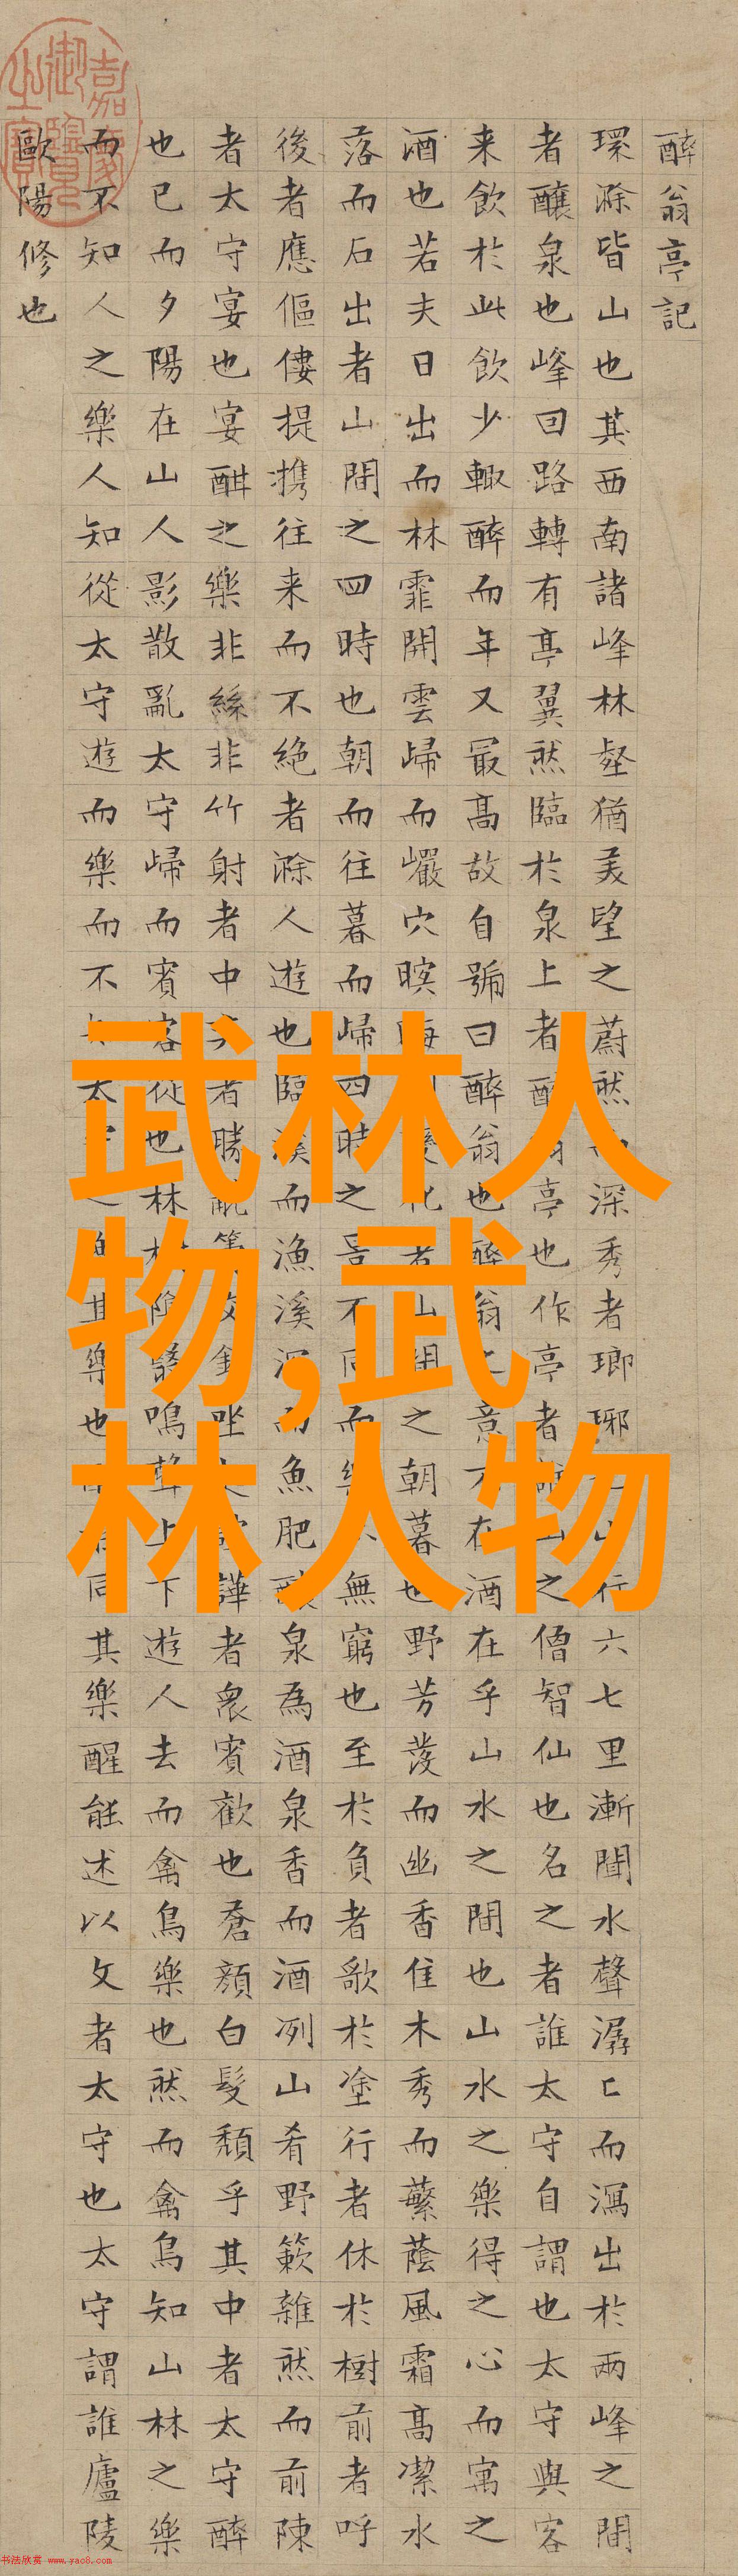 嘉慶御覽之寶
醉翁亭記
環滁皆山也其西南諸峰林壑猶美望之蔚然而深秀者瑯琊山行六七里漸聞水聲潺〻而瀉出於兩峰之間
者釀泉也峰回路轉有亭翼然臨於泉上者醉翁亭也作亭者山之僧智仙也名之者誰太守自謂也太守與客
来飲於此飲少輒醉而年又最高故自號曰醉翁也醉翁之意不在酒在乎山水之間也山水之樂得之心而寓之
酒也若夫日出而林霏開雲歸而巖穴暝晦變化者山間之朝暮也野芳發而幽香佳木秀而蘩蔭風霜高潔水
落而石出者山間之四時也朝而往暮而歸四時之景不同而樂無窮也至於負者歌於塗行者休於樹前者呼
後者應傴僂提携往来而不絕者滁人遊也臨溪而漁溪深而魚肥釀泉為酒泉香而酒冽山肴野簌雜然而前陳
者太守宴也宴酣之樂非絲非竹射者中者勝觥籌交錯坐譁者衆賓歡也蒼顏白髮頹乎其中者太守醉
也已而夕陽在山人影散亂太守歸而賓客從也林樹陰翳鳴聲上下遊人去而禽鳥樂也然而禽鳥知山林之樂
而不知人之樂人知從太守遊而樂而不太之其樂也同其樂醒能述以文者太守也太守謂誰廬陵
歐陽修也
武林人
物,武
林人物
书法欣赏 www.yac8.com